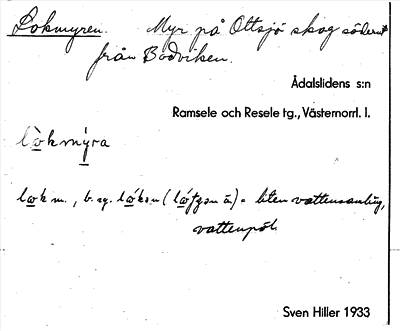 Lokmyren. Myr på Ottsjö skog söderut
från Bodviken.
Ådalslidens s:n
Ramsele och Resele tg., Västernorrl. l.
lòkmýra
lok m., b. sg. = liten vattensamling,
vattenpöl.
Sven Hiller 1933